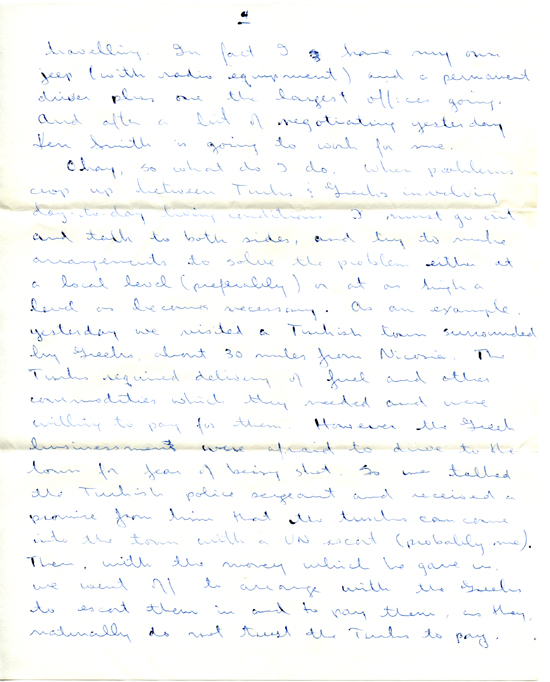 4
travelling. In fact I have my own
jeep (with radio equipment) and a permanent
driver plus one the largest offices going.
And after a lot of negotiating yesterday
Ken Smith is going to work for me.
Okay, so what do I do. When problems
crop up between Turks & Greeks involving
day-to-day living conditions I must go out
and talk to both sides, and try to make
arrangements to solve the problem either at
a local level (preferably) or at as high a
level as becomes necessary. As an example,
yesterday we visited a Turkish town surrounded
by Greeks, about 30 miles from Nicosia. The
Turks required delivery of fuel and other
commodities which they needed and were
willing to pay for them. However the Greek
businessmen were afraid to drive to the
town for fear of being shot. So we talked
the Turkish police sergeant and received a
promise from him that the trucks can come
into the town with a UN escort (probably me).
Then, with the money which he gave us,
we went off to arrange with the Greeks
to escort them in and to pay them, as they,
naturally do not trust the Turks to pay.